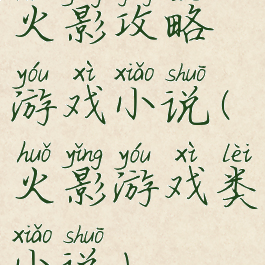 火影攻略
yóu xì xiǎo shuō
游戏小说(
huǒ yǐng yóu xì lèi
火影游戏类
xiǎo shuō
小说)